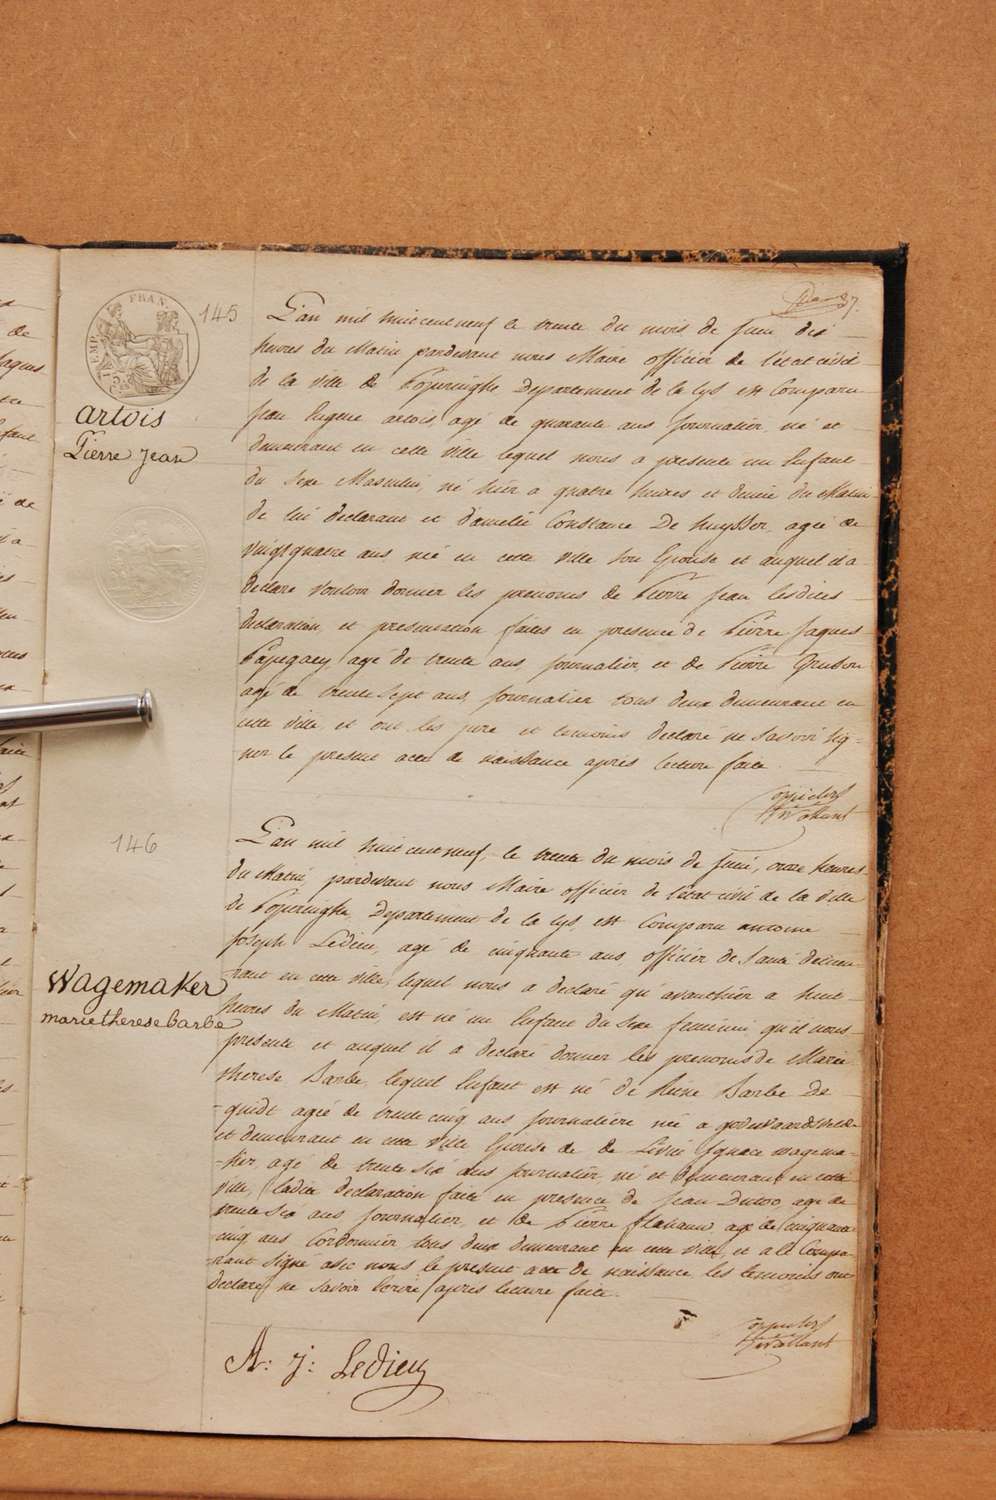 37.
EMP. FRAN.
145
artois
Pierre Jean
L'an mil huit cent neuf le trente du mois de Juin dix
heures du Matin pardevant nous Maire officier de l'état civil
de la ville de Poperinghe Departement de la Lys est Comparu
Jean Eugene artois, agé de quarante ans Journalier, né et
demeurant en cette ville lequel nous a presenté un Enfant
du Sexe Masculin, né hier a quatre heures et demie du Matin
de lui declarant et d'amelie Constance De huysser, agée de
vingt quatre ans, née en cette ville son Epouse et auquel il a
declaré vouloir donner les prenoms de Pierre Jean lesdites
declaration et presentation faites en presence de Pierre Jaques
Papegaey agé de trente ans, journalier, et de Pierre
agé de trente sept ans, Journalier tous deux demeurant en
cette ville, et ont les pere et temoins declaré ne savoir sig-
ner le present acte de naissance après lecture faite.
146
Wagemaker
marie therese barbe
L'an mil huit cent neuf, le trente du mois de Juin, onze heures
du Matin pardevant nous Maire officier de l'état civil de la ville
de Poperinghe, Departement de la Lys, est Comparu antoine
Joseph Ledieu, agé de cinquante ans, officier de Santé demeu-
rant en cette ville, lequel nous a declaré qu'avanthier a huit
heures du Matin, est né un Enfant du Sexe feminin, qu'il nous
presente et auquel il a declaré donner les prenoms de Marie
therese Barbe, lequel Enfant est né de Reine Barbe De
quidt agée de trente cinq ans Journalière née a
et demeurant en cette ville Epouse de de Livin Ignace wagema-
-ker, agé de trente six ans Journalier né et demeurant en cette
ville, ladite declaration faite en presence de Jean agé de
trente six ans Journalier, et de Pierre agé de cinquante
cinq ans Cordonnier tous deux demeurant en cette ville, et a le Compa-
rant signé avec nous le present acte de naissance, les temoins ont
declaré ne savoir Ecrire, après lecture faite.
A: J: Ledieu